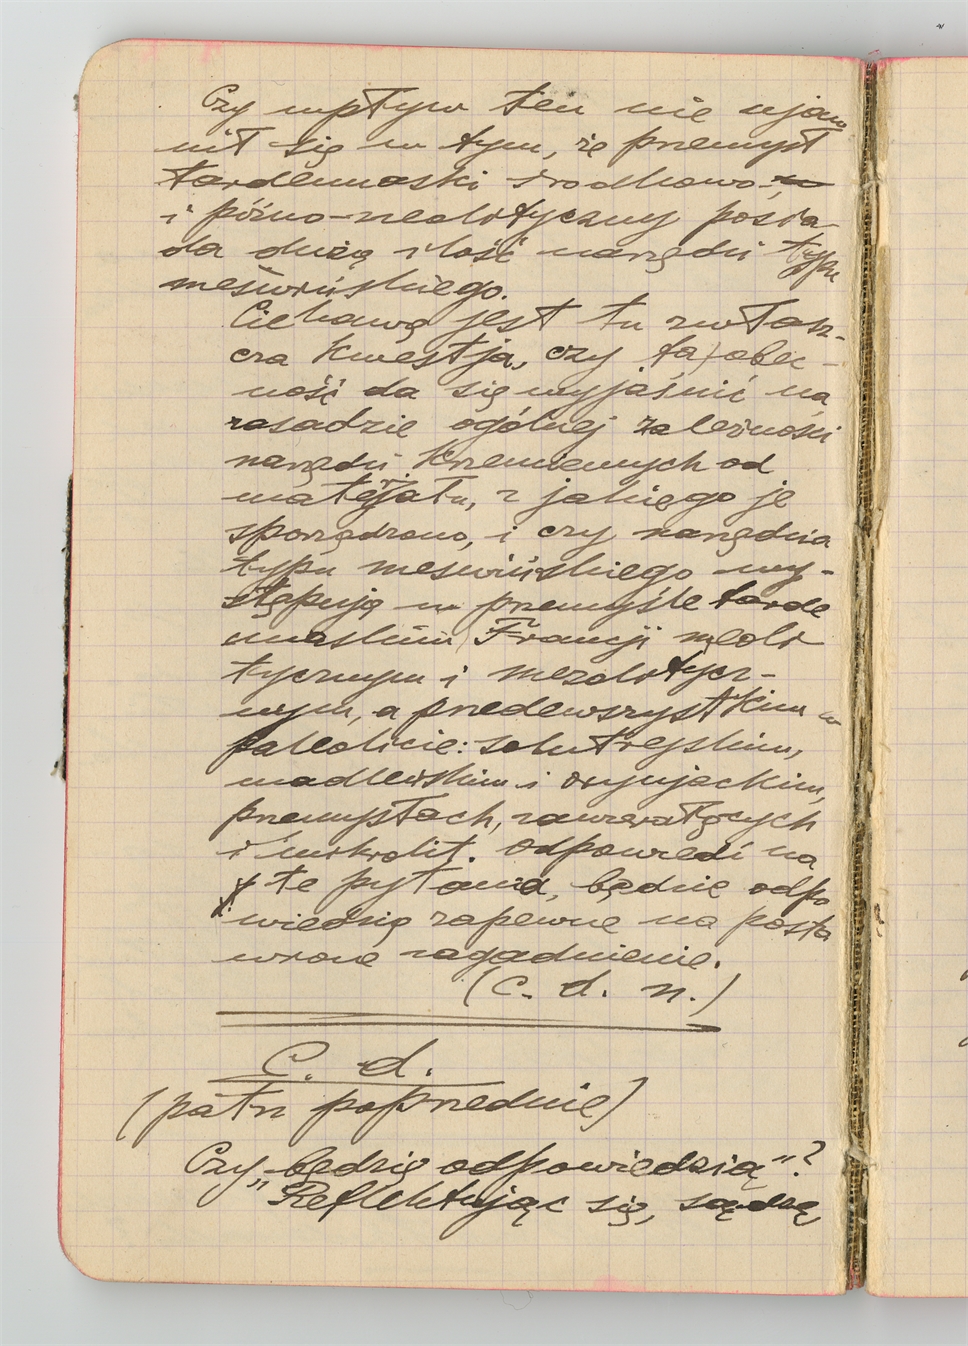 Czy wpływ ten nie ujaw
nił się w tym, że przemysł
tardenuaski środkowo-
i późno-neolityczny posia-
da dużą ilość narzędzi typu
meświńskiego.
Ciekawą jest tu zwłasz-
cza kwestja, czy ta obec-
ność da się wyjaśnić na
zasadzie ogólnej zależności
narzędzi krzemiennych od
materjału, z jakiego je
sporządzono, i czy narzędzia
typu meswińskiego wy-
stępują w przemyśle tarde
nuaskim Francji neoli
tycznym i mezolitycz-
nym, a przedewszystkim w
paleolicie: solutrejskim,
madleńskim i oryniackim,
przemysłach, zawierających
i mikrolit. Odpowiedź na
te pytania, będzie odpo
wiedzią zapewne na posta
wione zagadnienie.
(C. d. n.)
C. d.
(patrz poprzednie)
Czy „będzie odpowiedzią"?
Reflektując się, sądzę,